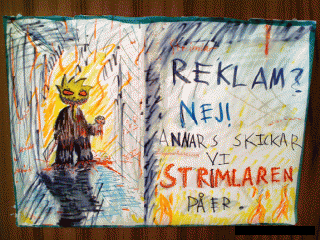 REKLAM?
NEJ!
ANNARS SKICKAR
VI
STRIMLAREN
PÅ ER.